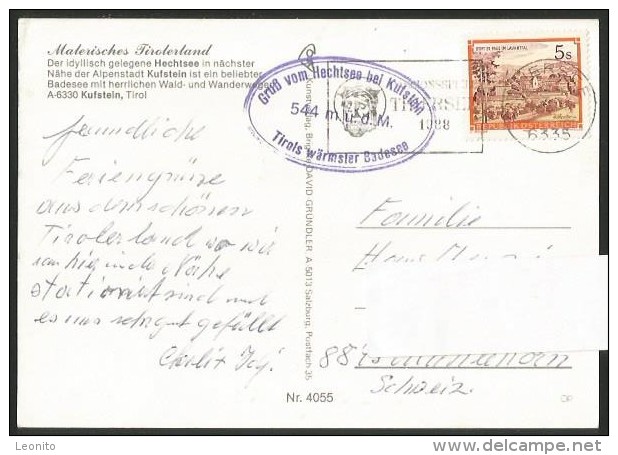 Malerisches Tirolerland
Der idyllisch gelegene Hechtsee in nächster
Nähe der Alpenstadt Kufstein ist ein beliebter
Badesee mit herrlichen Wald- und Wanderwegen
A-6330 Kufstein, Tirol
Gruß vom Hechtsee bei Kufstein
544 m.ü.d.M.
Tirols wärmster Badesee
1988
6335
STIFT ST. PAUL IM LAVANTTAL
5s
REPUBLIK ÖSTERREICH
freundliche
Feriengrüsse
aus dem schönen
Tirolerland wo wir
hier in der Nähe
stationiert sind und
es uns sehr gut gefällt
DAVID GRÜNDLER A-5013 Salzburg, Postfach 35
Familie
Hans
88
Schweiz
Nr. 4055
Leonito
www.delcampe.net